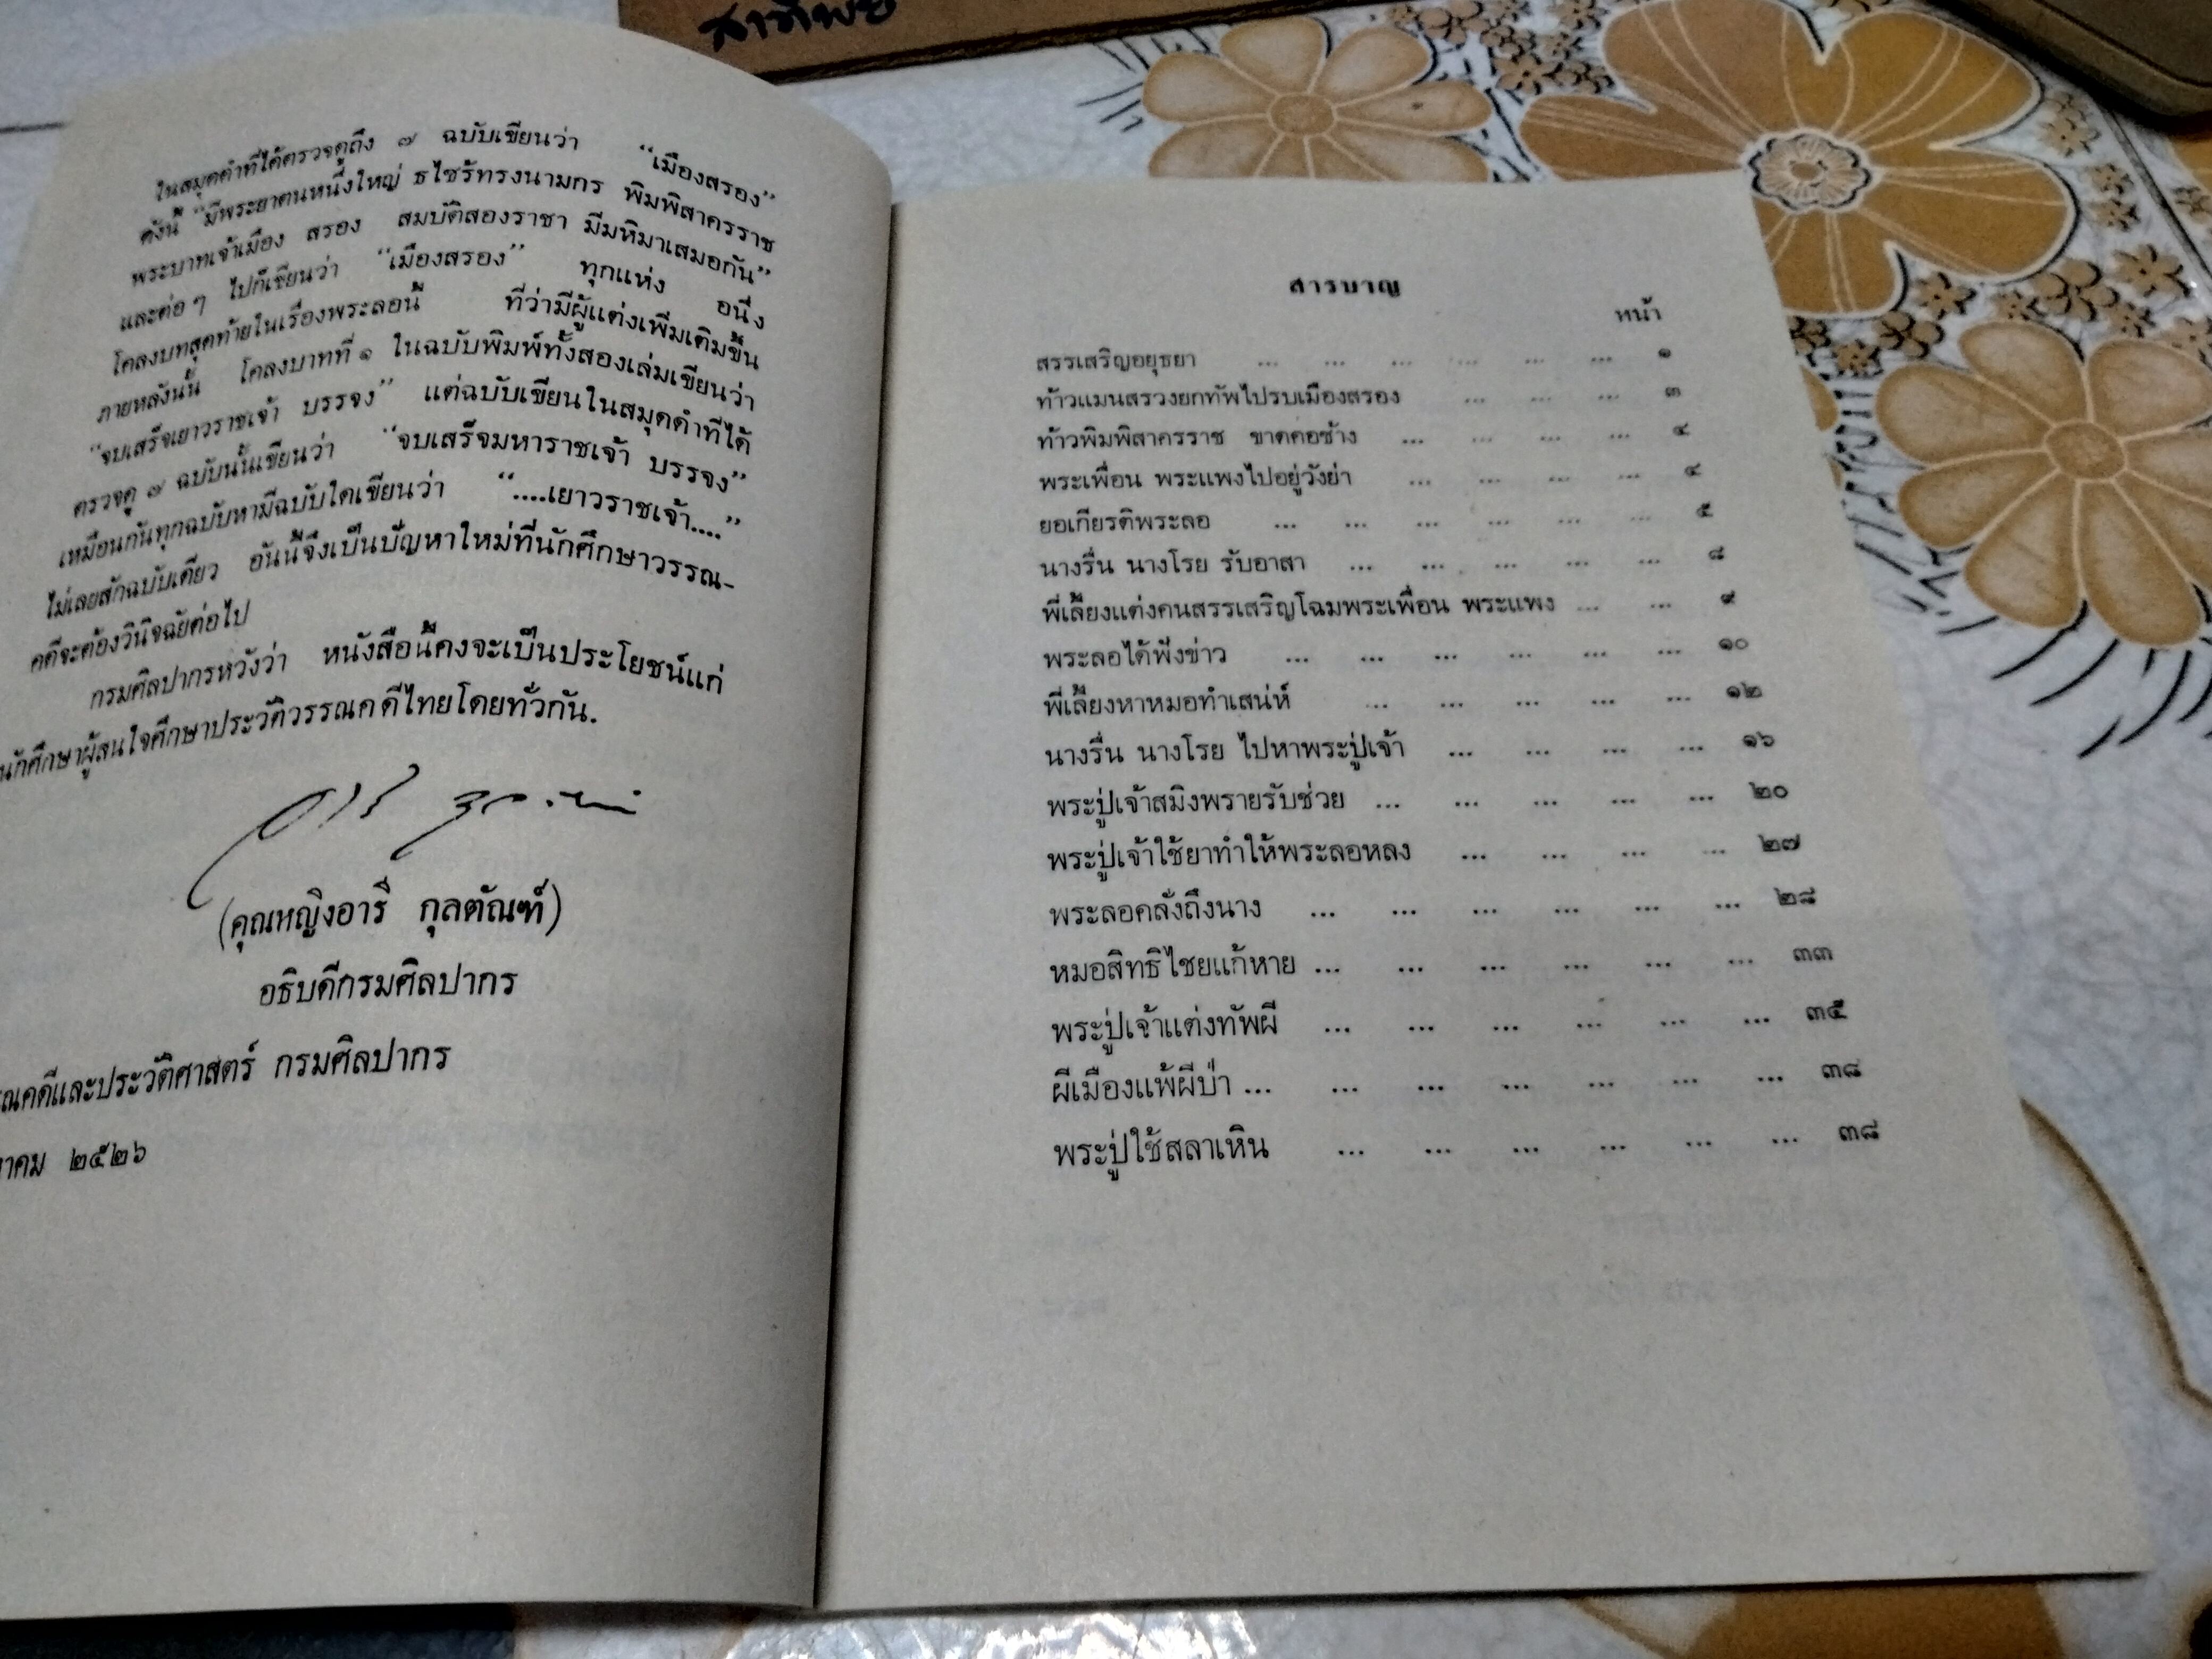 สาร
ในสมุดดำที่ได้ตรวจดูถึง ๗ ฉบับเขียนว่า “เมืองสรอง”
ดังนี้ “มีพระยาตนหนึ่งใหญ่ ธไซร้ทรงนามกร พิมพิสาครราช
พระบาทเจ้าเมือง สรอง สมบัติสองราชา มีมหิมาเสมอกัน”
และต่อ ๆ ไปก็เขียนว่า “เมืองสรอง” ทุกแห่ง อนึ่ง
โคลงบทสุดท้ายในเรื่องพระลอนี้ ที่ว่ามีผู้แต่งเพิ่มเติมขึ้น
ภายหลังนั้น โคลงบาทที่ ๑ ในฉบับพิมพ์ทั้งสองเล่มเขียนว่า
“จบเสร็จเยาวราชเจ้า บรรจง” แต่ฉบับเขียนในสมุดดำที่ได้
ตรวจดู ๗ ฉบับนั้นเขียนว่า “จบเสร็จมหาราชเจ้า บรรจง”
เหมือนกันทุกฉบับหามีฉบับใดเขียนว่า “....เยาวราชเจ้า....”
ไม่เลยสักฉบับเดียว อันนี้จึงเป็นปัญหาใหม่ที่นักศึกษาวรรณ-
คดีจะต้องวินิจฉัยต่อไป
กรมศิลปากรหวังว่า หนังสือนี้คงจะเป็นประโยชน์แก่
นักศึกษาผู้สนใจศึกษาประวัติวรรณคดีไทยโดยทั่วกัน.
(คุณหญิงอารี กุลตัณฑ์)
อธิบดีกรมศิลปากร
รณคดีและประวัติศาสตร์ กรมศิลปากร
าคม ๒๕๒๖
สารบาญ
หน้า
สรรเสริญอยุธยา ... ... ... ... ... ... ๑
ท้าวแมนสรวงยกทัพไปรบเมืองสรอง ... ... ... ๓
ท้าวพิมพิสาครราช ขาดคอช้าง ... ... ... ... ๔
พระเพื่อน พระแพงไปอยู่วังย่า ... ... ... ... ๔
ยอเกียรติพระลอ ... ... ... ... ... ... ๕
นางรื่น นางโรย รับอาสา ... ... ... ... ... ๘
พี่เลี้ยงแต่งคนสรรเสริญโฉมพระเพื่อน พระแพง ... ... ๙
พระลอได้ฟังข่าว ... ... ... ... ... ... ๑๐
พี่เลี้ยงหาหมอทำเสน่ห์ ... ... ... ... ... ๑๒
นางรื่น นางโรย ไปหาพระปู่เจ้า ... ... ... ... ๑๖
พระปู่เจ้าสมิงพรายรับช่วย ... ... ... ... ... ๒๐
พระปู่เจ้าใช้ยาทำให้พระลอหลง ... ... ... ... ๒๗
พระลอคลั่งถึงนาง ... ... ... ... ... ... ๒๘
หมอสิทธิไชยแก้หาย ... ... ... ... ... ... ๓๓
พระปู่เจ้าแต่งทัพผี ... ... ... ... ... ... ๓๕
ผีเมืองแพ้ผีป่า ... ... ... ... ... ... ... ๓๘
พระปู่ใช้สลาเหิน ... ... ... ... ... ... ๓๘